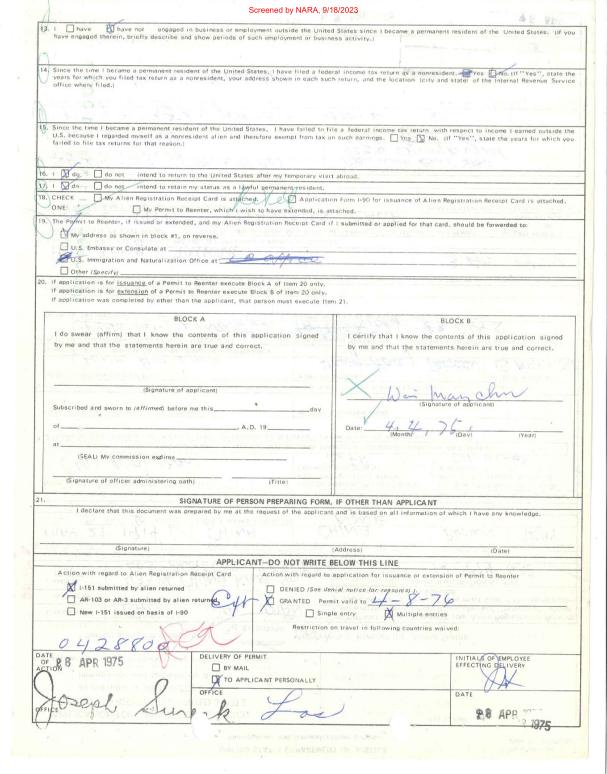 Screened by NARA, 9/18/2023
13. I have have not engaged in business or employment outside the United States since I became a permanent resident of the United States. (If you
have engaged therein, briefly describe and show periods of such employment or business activity.)
14. Since the time I became a permanent resident of the United States, I have filed a federal income tax return as a nonresident. Yes No. (If "Yes", state the
years for which you filed tax return as a nonresident, your address shown in each such return, and the location (city and state) of the Internal Revenue Service
office where filed.)
15. Since the time I became a permanent resident of the United States, I have failed to file a federal income tax return with respect to income I earned outside the
U.S. because I regarded myself as a nonresident alien and therefore exempt from tax on such earnings. Yes No (If "Yes", state the years for which you
failed to file tax returns for that reason.)
16. I do do not intend to return to the United States after my temporary visit abroad.
17. I do do not intend to retain my status as a lawful permanent resident.
18. CHECK My Alien Registration Receipt Card is attached. Application Form I-90 for issuance of Alien Registration Receipt Card is attached.
ONE: My Permit to Reenter, which I wish to have extended, is attached.
19. The Permit to Reenter, if issued or extended, and my Alien Registration Receipt Card if I submitted or applied for that card, should be forwarded to:
My address as shown in block #1, on reverse.
U.S. Embassy or Consulate at
U.S. Immigration and Naturalization Office at
Other (Specify)
20. If application is for issuance of a Permit to Reenter execute Block A of Item 20 only.
If application is for extension of a Permit to Reenter execute Block B of Item 20 only.
If application was completed by other than the applicant, that person must execute Item 21.
BLOCK A
I do swear (affirm) that I know the contents of this application signed
by me and that the statements herein are true and correct.
(Signature of applicant)
Subscribed and sworn to (affirmed) before me this day
of , A.D. 19
at
(SEAL) My commission expires
(Signature of officer administering oath) (Title)
BLOCK B
I certify that I know the contents of this application signed
by me and that the statements herein are true and correct.
Wai Man Chu
(Signature of applicant)
Date: 4, 4, 75,
(Month) (Day) (Year)
21. SIGNATURE OF PERSON PREPARING FORM, IF OTHER THAN APPLICANT
I declare that this document was prepared by me at the request of the applicant and is based on all information of which I have any knowledge.
(Signature) (Address) (Date)
APPLICANT—DO NOT WRITE BELOW THIS LINE
Action with regard to Alien Registration Receipt Card
I-151 submitted by alien returned
AR-103 or AR-3 submitted by alien returned
New I-151 issued on basis of I-90
Action with regard to application for issuance or extension of Permit to Reenter
DENIED (See denial notice for reason(s).)
GRANTED Permit valid to 4-8-76
Single entry Multiple entries
Restriction on travel in following countries waived:
0428800
DATE OF ACTION 08 APR 1975
Joseph Sureck
OFFICE
DELIVERY OF PERMIT
BY MAIL
TO APPLICANT PERSONALLY
OFFICE
Los
INITIALS OF EMPLOYEE
EFFECTING DELIVERY
DATE
28 APR 1975